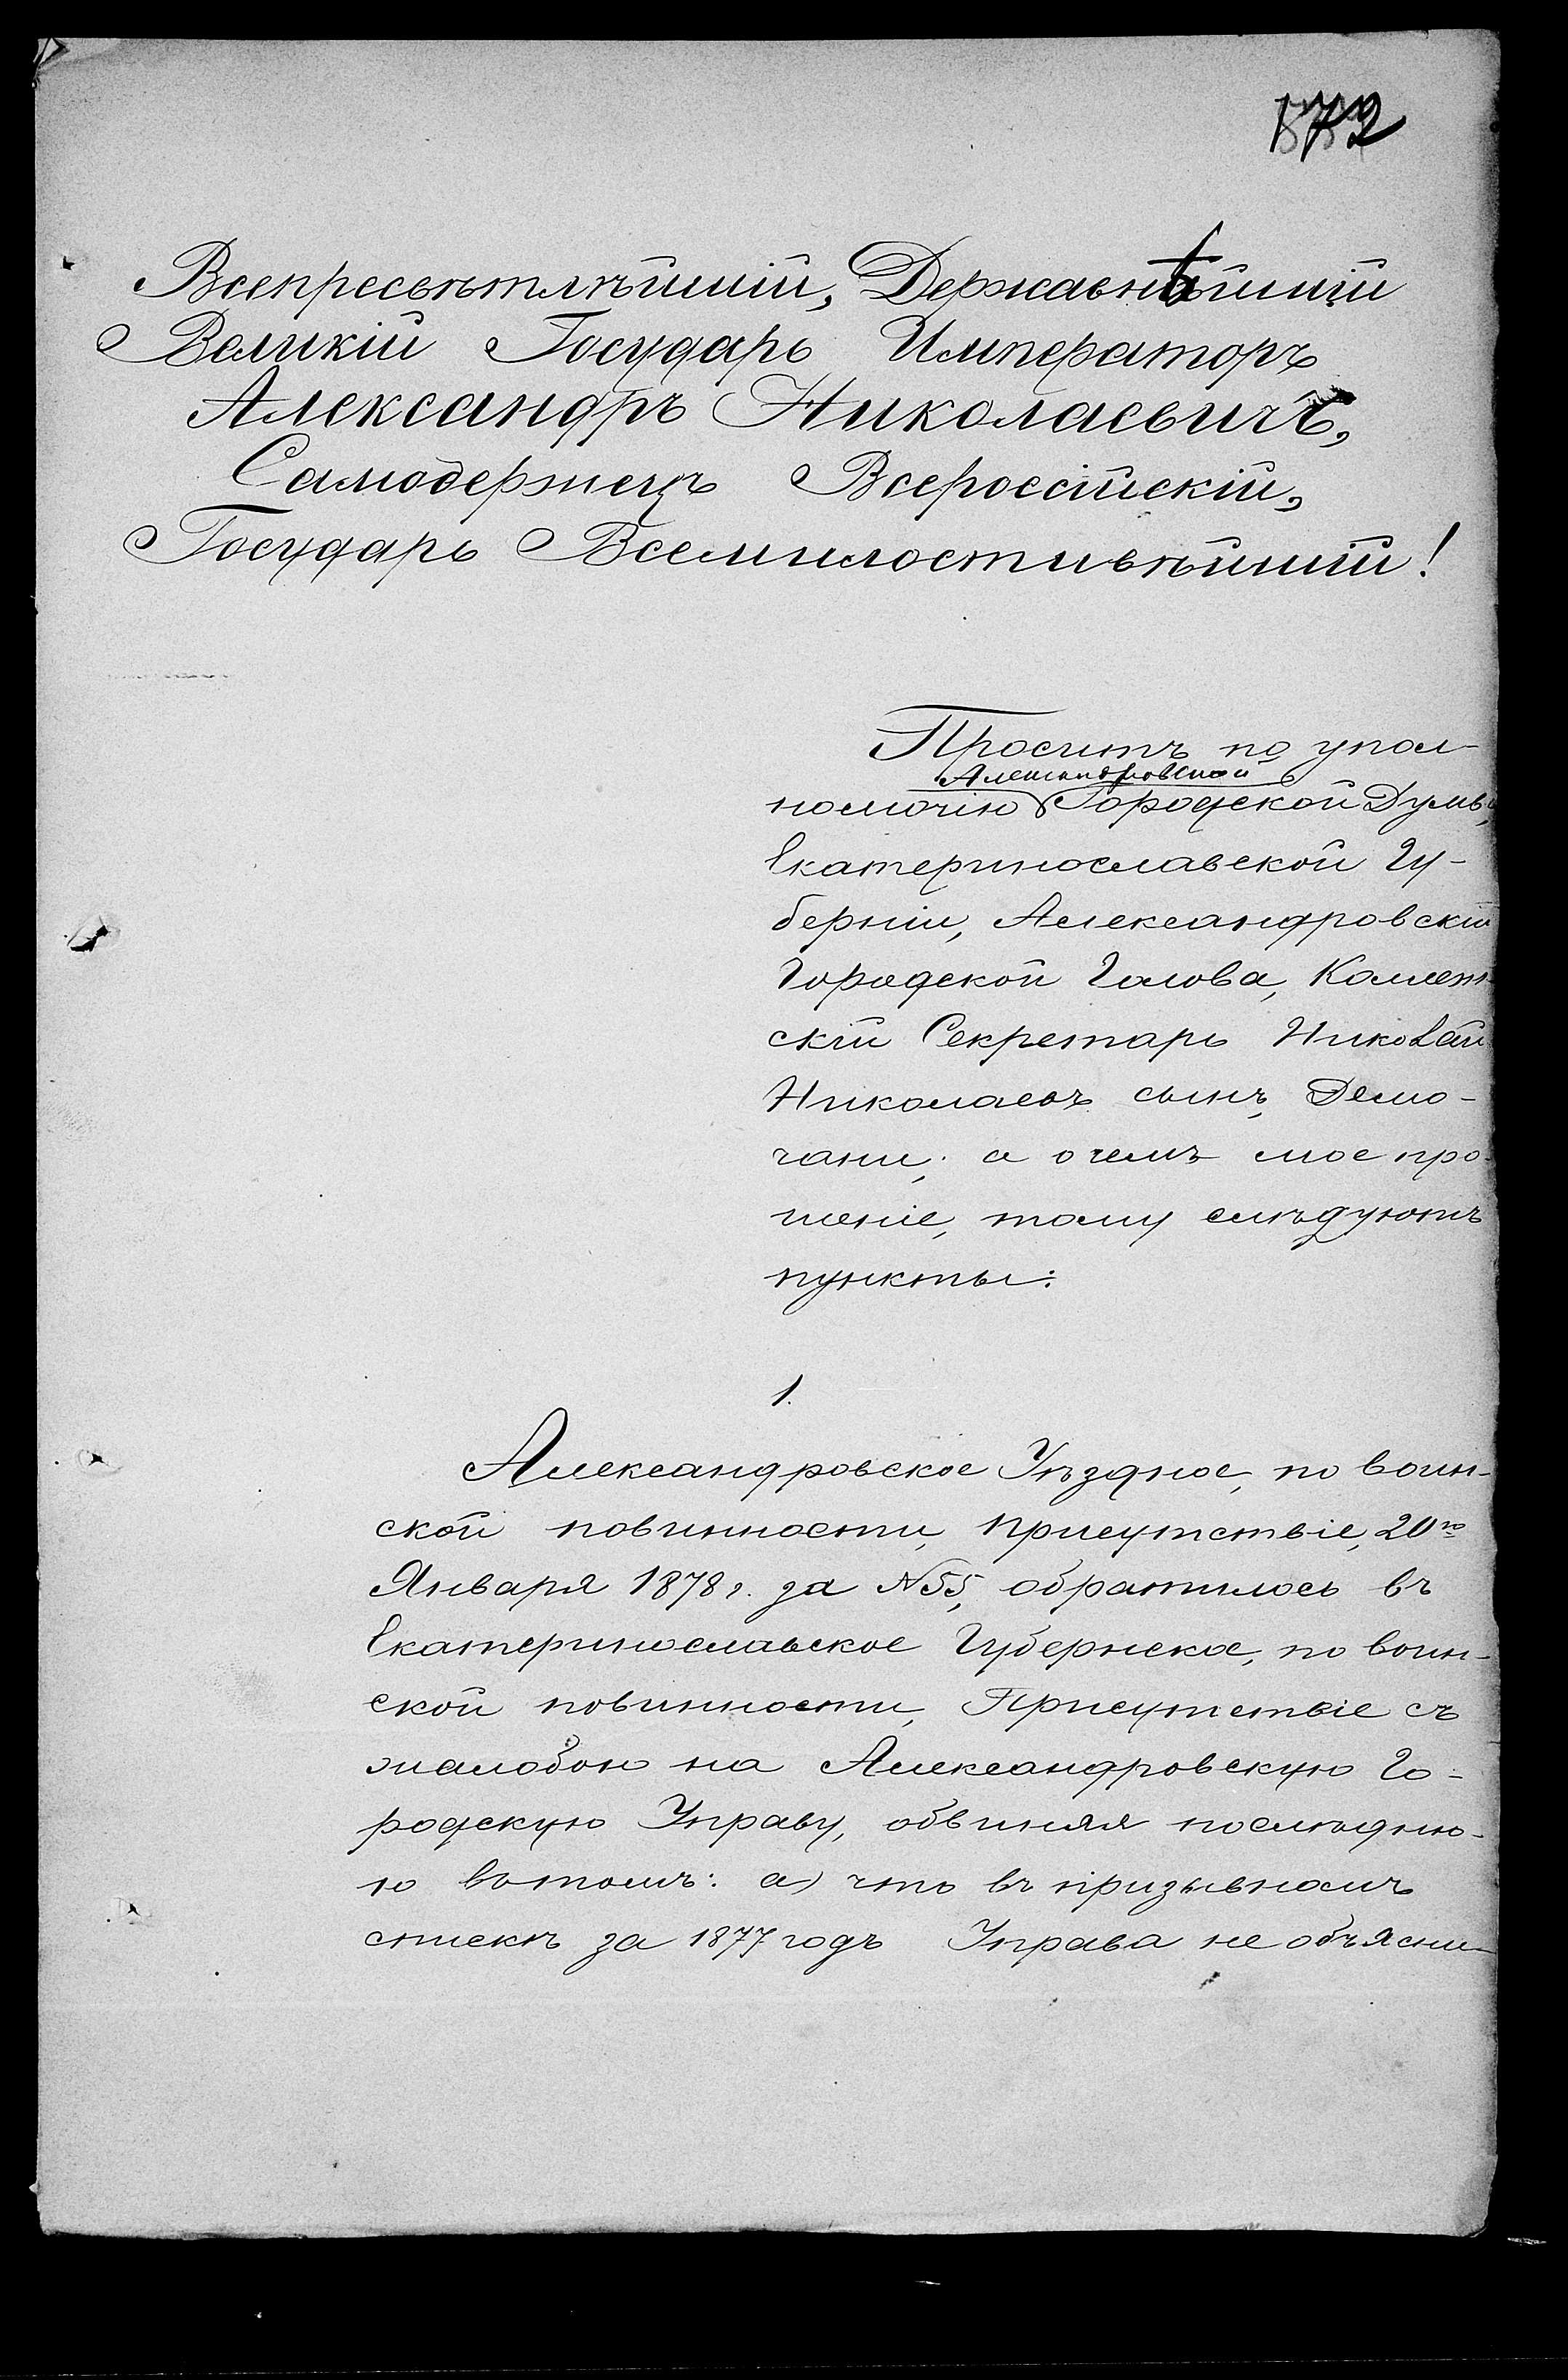 172
Всепресвѣтлѣйшій, Державнѣйшій
Великій Государь Императоръ
Александръ Николаевичъ,
Самодержецъ Всероссійскій,
Государь Всемилостивѣйшій!
Проситъ по упол-
Александровской
номочію Городской Думы,
Екатеринославской Гу-
берніи, Александровскій
Городской Голова, Коллеж-
скій Секретарь Николай
Николаевъ сынъ, Демо-
чани; а о чемъ мое про-
шеніе, тому слѣдуютъ
пункты:
1.
Александровское Уѣздное, по воин-
ской повинности, Присутствіе, 20го
Января 1878 г. за №55, обратилось въ
Екатеринославское Губернское, по воин-
ской повинности, Присутствіе съ
жалобою на Александровскую Го-
родскую Управу, обвиняя послѣдню-
ю въ томъ: а) что въ призывномъ
спискѣ за 1877 годъ Управа не объясни-